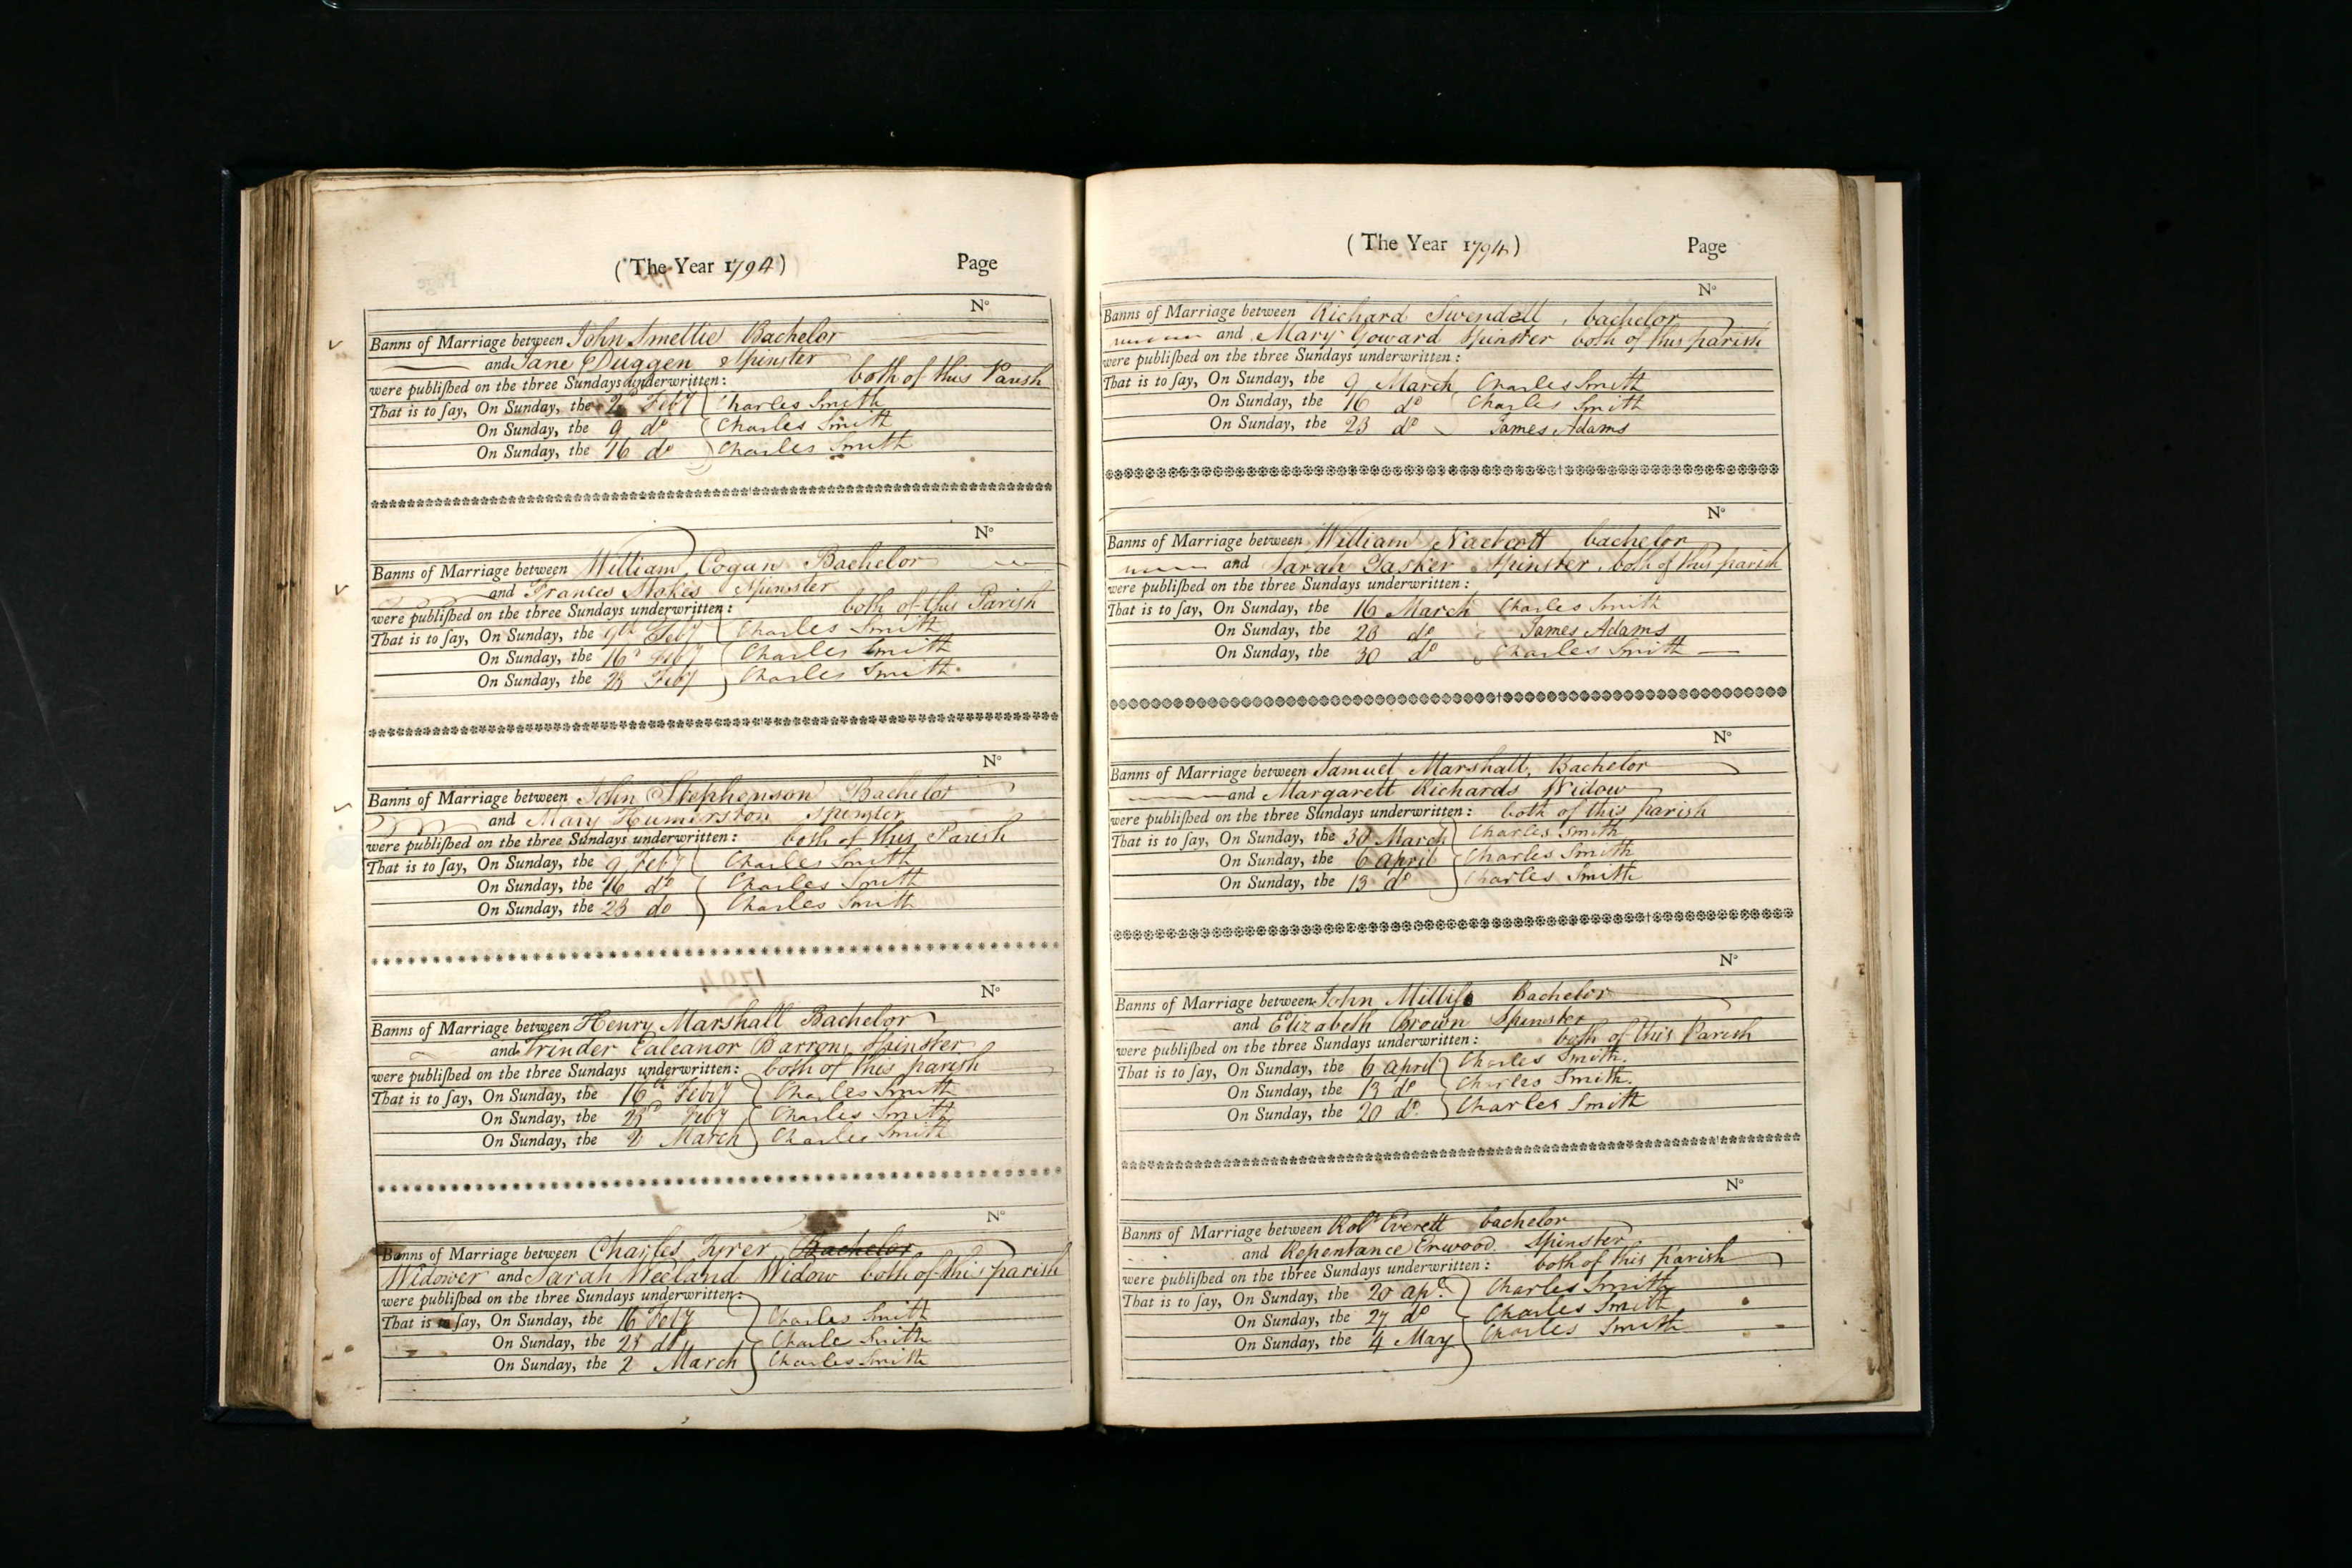 (The Year 1794) Page
No
Banns of Marriage between John Smettie Bachelor
and Jane Duggen Spinster
were publiſhed on the three Sundays underwritten: both of this Parish
That is to ſay, On Sunday, the 2 Feby Charles Smith
On Sunday, the 9 do Charles Smith
On Sunday, the 16 do Charles Smith
No
Banns of Marriage between William Cogan Bachelor
and Frances Stokes Spinster
were publiſhed on the three Sundays underwritten: both of this Parish
That is to ſay, On Sunday, the 9th Feby Charles Smith
On Sunday, the 16 Feby Charles Smith
On Sunday, the 23 Feby Charles Smith
No
Banns of Marriage between John Stephenson Bachelor
and Mary Humerston Spinster
were publiſhed on the three Sundays underwritten: both of this Parish
That is to ſay, On Sunday, the 9 Feby Charles Smith
On Sunday, the 16 do Charles Smith
On Sunday, the 23 do Charles Smith
No
Banns of Marriage between Henry Marshall Bachelor
and Trinder Ealeanor Barron Spinster
were publiſhed on the three Sundays underwritten: both of this parish
That is to ſay, On Sunday, the 16th Feby Charles Smith
On Sunday, the 23d Feby Charles Smith
On Sunday, the 2 March Charles Smith
No
Banns of Marriage between Charles Tyrer Bachelor
Widower and Sarah Weeland Widow both of this parish
were publiſhed on the three Sundays underwritten:
That is to ſay, On Sunday, the 16 Feby Charles Smith
On Sunday, the 23 do Charle Smith
On Sunday, the 2 March Charles Smith
(The Year 1794) Page
No
Banns of Marriage between Richard Swendell, bachelor
and Mary Goward Spinster both of this parish
were publiſhed on the three Sundays underwritten:
That is to ſay, On Sunday, the 9 March Charles Smith
On Sunday, the 16 do Charles Smith
On Sunday, the 23 do James Adams
No
Banns of Marriage between William bachelor
and Sarah Tasker Spinster both of this parish
were publiſhed on the three Sundays underwritten:
That is to ſay, On Sunday, the 16 March Charles Smith
On Sunday, the 23 do James Adams
On Sunday, the 30 do Charles Smith
No
Banns of Marriage between Samuel Marshall, Bachelor
and Margarett Richards Widow
were publiſhed on the three Sundays underwritten: both of this parish
That is to ſay, On Sunday, the 30 March Charles Smith
On Sunday, the 6 April Charles Smith
On Sunday, the 13 do Charles Smith
No
Banns of Marriage between John Bachelor
and Elizabeth Brown Spinster
were publiſhed on the three Sundays underwritten: both of this Parish
That is to ſay, On Sunday, the 6 April Charles Smith.
On Sunday, the 13 do Charles Smith.
On Sunday, the 20 do Charles Smith
No
Banns of Marriage between Robt Everett bachelor
and Repentance Erwood Spinster
were publiſhed on the three Sundays underwritten: both of this parish
That is to ſay, On Sunday, the 20 apl. Charles Smith
On Sunday, the 27 do Charles Smith
On Sunday, the 4 May Charles Smith